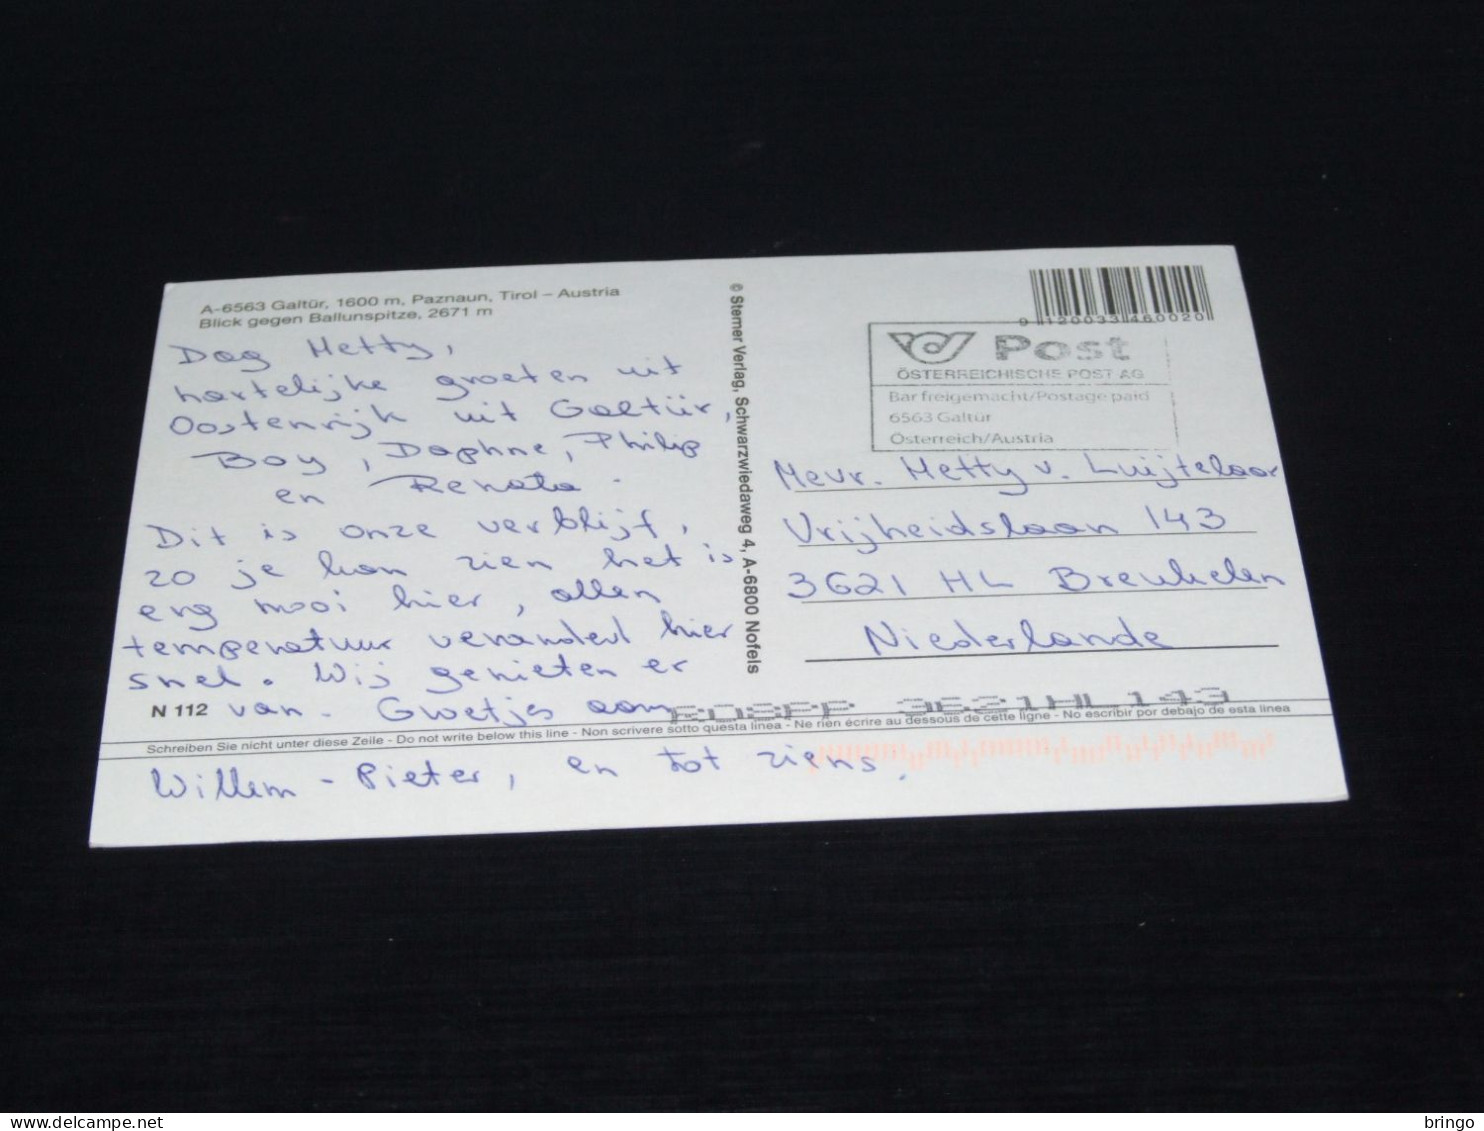 A-6563 Galtür, 1600 m, Paznaun, Tirol – Austria
Blick gegen Ballunspitze, 2671 m
Dag Hetty,
hartelijke groeten uit
Oostenrijk uit Galtür,
Boy, Daphne, Philip
en Renata.
Dit is onze verblijf,
zo je kan zien het is
erg mooi hier, allen
temperatuur verandert hier
snel. Wij genieten er
N 112 van. Groetjes aan
Schreiben Sie nicht unter diese Zeile - Do not write below this line - Non scrivere sotto questa linea - Ne rien écrire au dessous de cette ligne - No escribir por debajo de esta linea
Willem - Pieter, en tot ziens.
© Sterner Verlag, Schwarzwiedaweg 4, A-6800 Nofels
9 120033 460020
Post
ÖSTERREICHISCHE POST AG
Bar freigemacht/Postage paid
6563 Galtür
Österreich/Austria
Mevr. Hetty v. Luijtelaar
Vrijheidslaan 143
3621 HL Breukelen
Niederlande
3621HL 143
www.delcampe.net
bringo